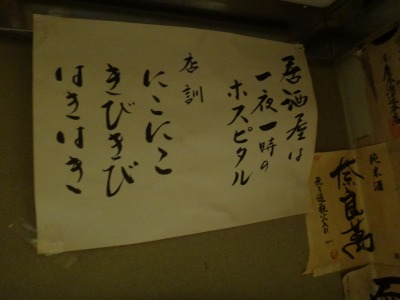 居酒屋は
一夜一時の
ホスピタル
店訓
にこにこ
きびきび
はきはき
純米酒
奈良萬